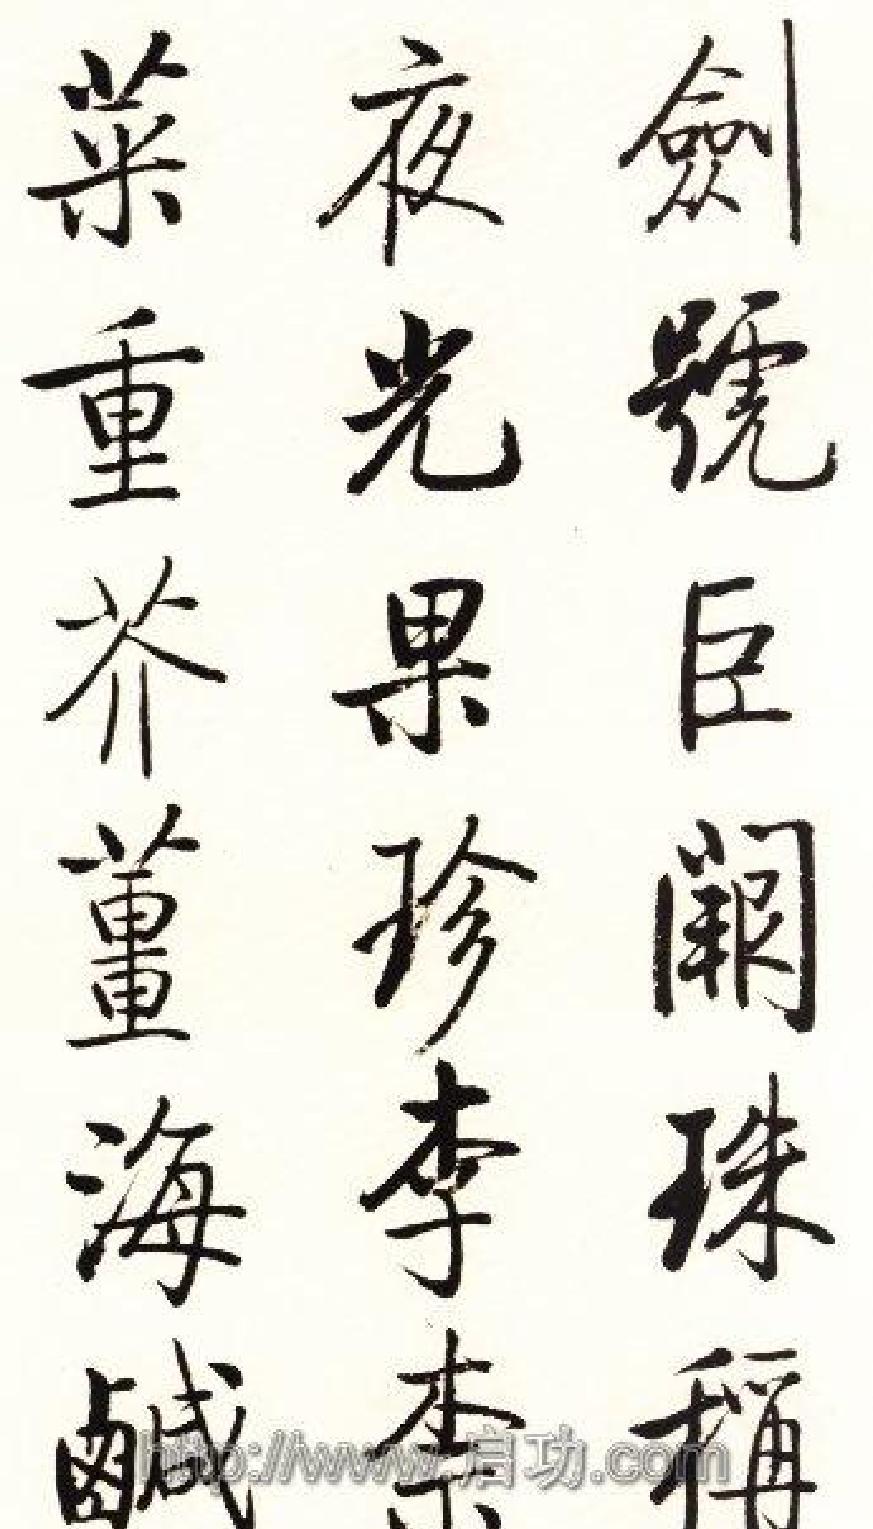 劍號巨闕珠稱
夜光果珍李柰
菜重芥薑海鹹
http://www.启功.com